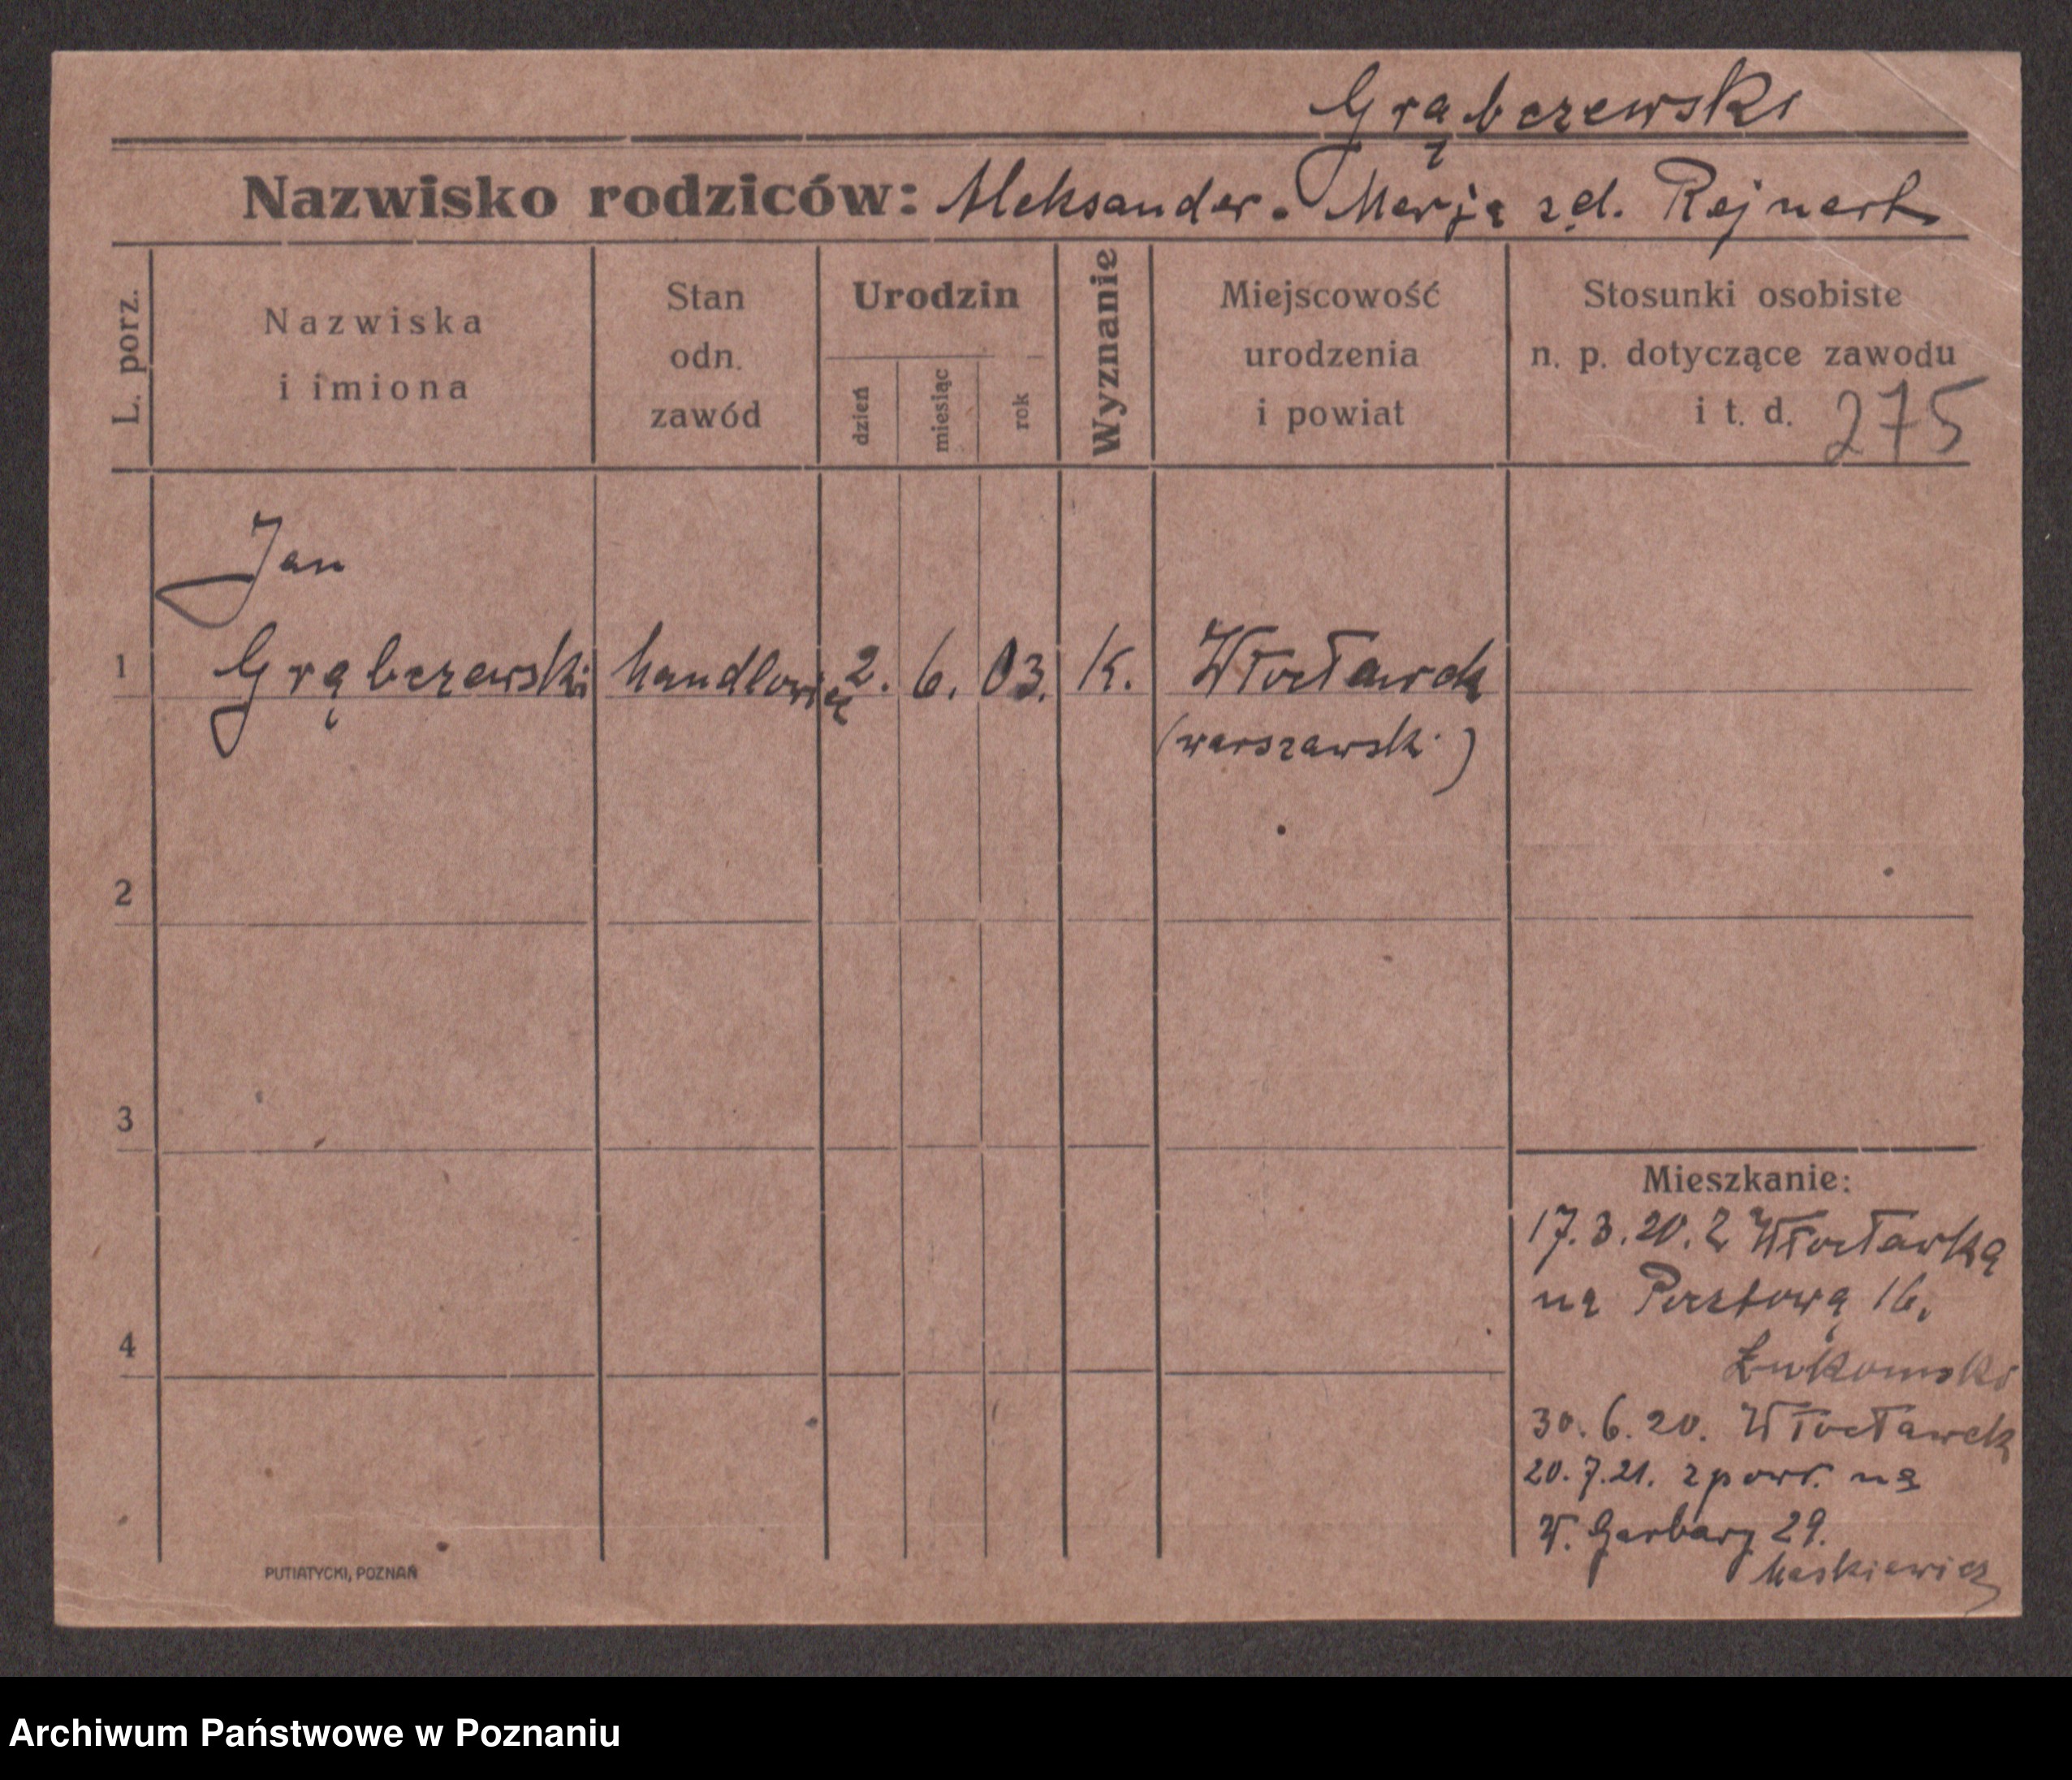 Grąbczewski
Nazwisko rodziców: Aleksander. Marja z d. Rejnert
L. porz.
Nazwiska
i imiona
Stan
odn.
zawód
Urodzin
dzień
miesiąc
rok
Wyznanie
Miejscowość
urodzenia
i powiat
Stosunki osobiste
n. p. dotyczące zawodu
i t. d. 275
Jan
1 Grąbczewski handlowiec 2. 6. 03. K. Włocławek
(warszawski)
2
3
4
Mieszkanie:
17.3.20. z Włocławka
na Pocztową 16.
Łukomski
30.6.20. Włocławek
20.7.21. z powr. na
W. Garbary 29.
Maskiewicz
PUTIATYCKI, POZNAŃ
Archiwum Państwowe w Poznaniu